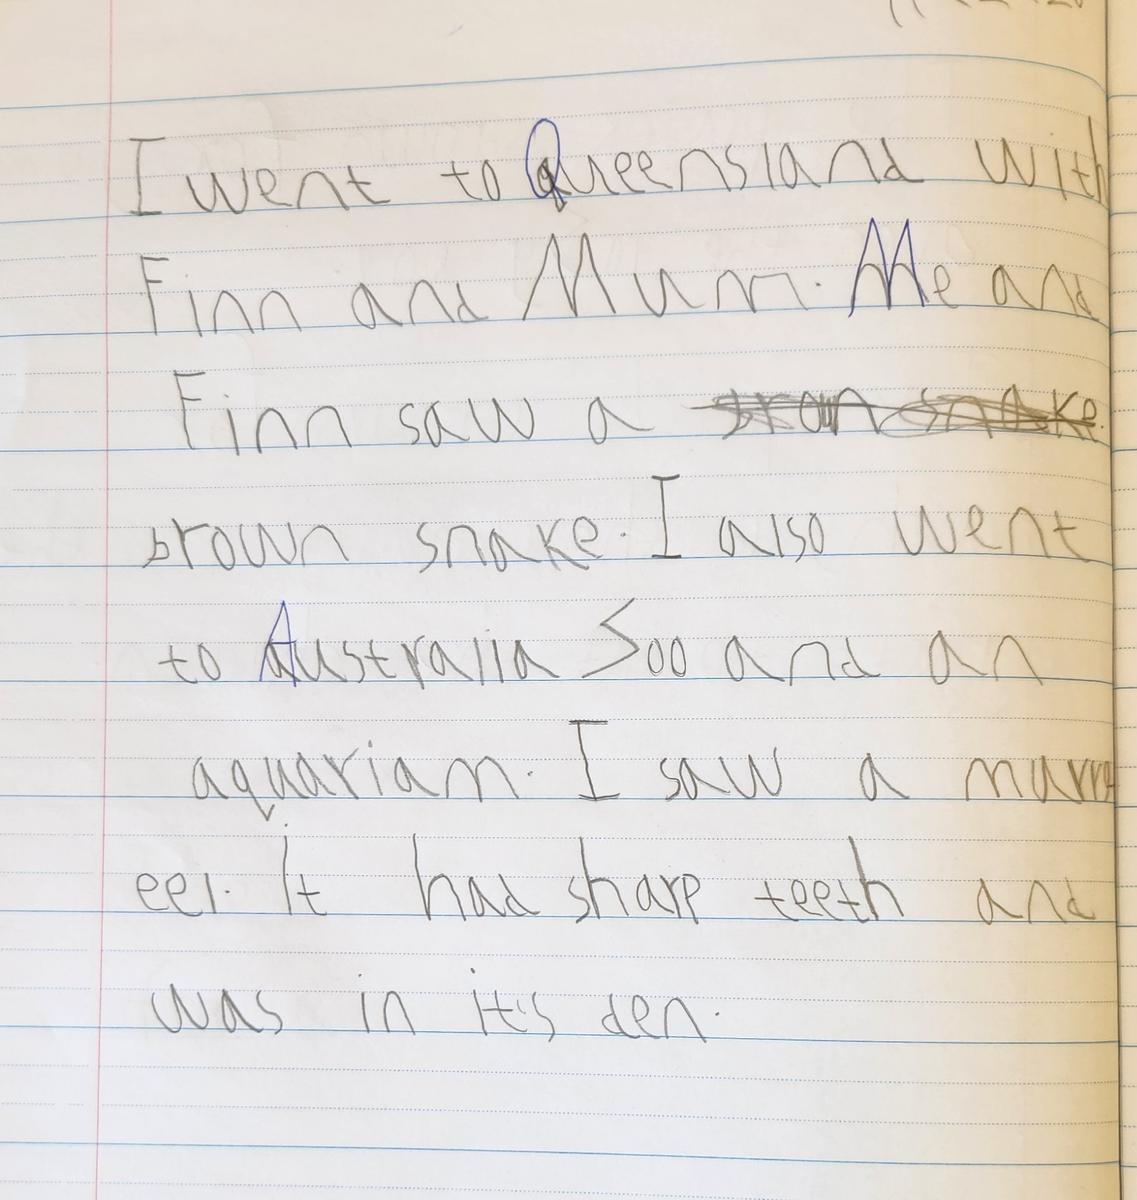 I went to Queensland with
Finn and Mum. Me and
Finn saw a snake.
brown snake. I also went
to Australia Soo and an
aquariam. I saw a
eel. It had sharp teeth and
was in it's den.